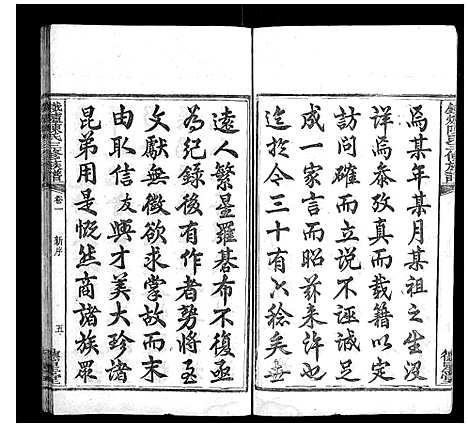 為某年某月某祖之生沒
詳為叅攷真而載籍以定
訪問確而立說不誣誠足
成一家言而昭茲来许也
迄於令三十有八稔矣世
遠人繁星羅碁布不復亟
為纪錄後有作者勢將至
文獻無徵欲求掌故而末
由取信友興才美大珍诸
昆弟用是慨然商諸族眾
陳氏三修族譜
卷一
新序
五
德星堂